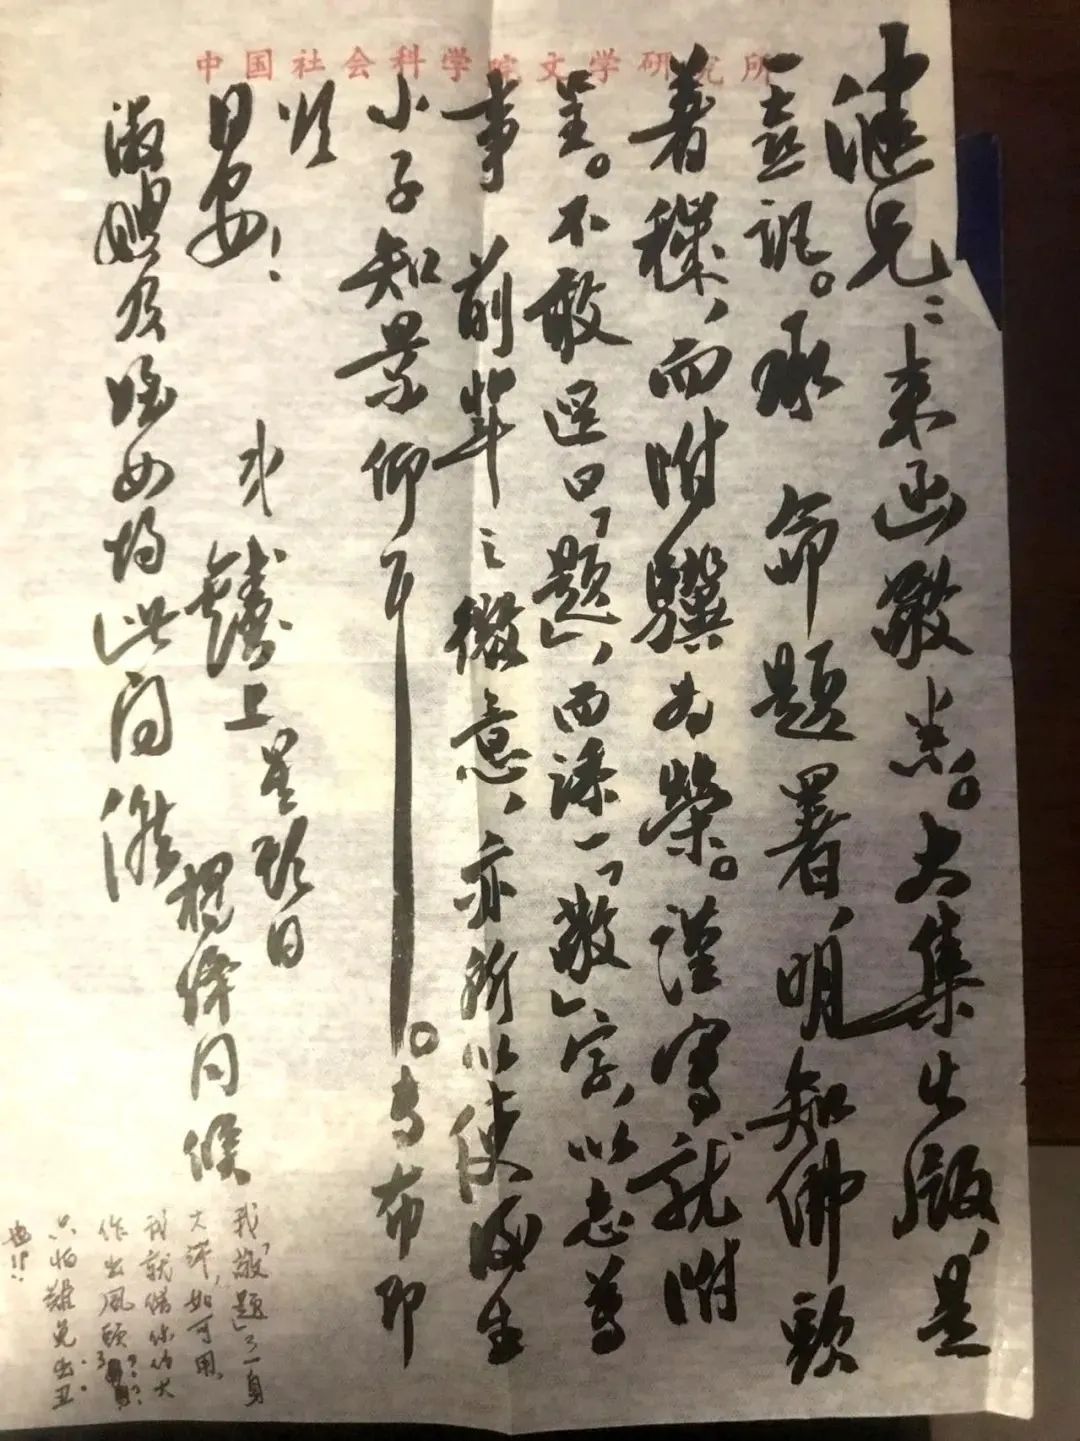 中国社会科学院文学研究所
兄：来函敬悉。大集出版，是
一喜讯。承 命题署，明知佛头
着秽，而附骥为荣。谨写就附
呈。不敢迳曰「题」，而添一「敬」字，以志尊
事 前辈之微意，亦所以使后生
小子知景仰耳。专布即
颂
日安！
弟 钱 上 星期日
杨绛同候
淑 及 女均此问候
我「敬题」了一身
大汗，如可用，
我就借你的大
作出风头了？？
只怕难免出丑
也！！